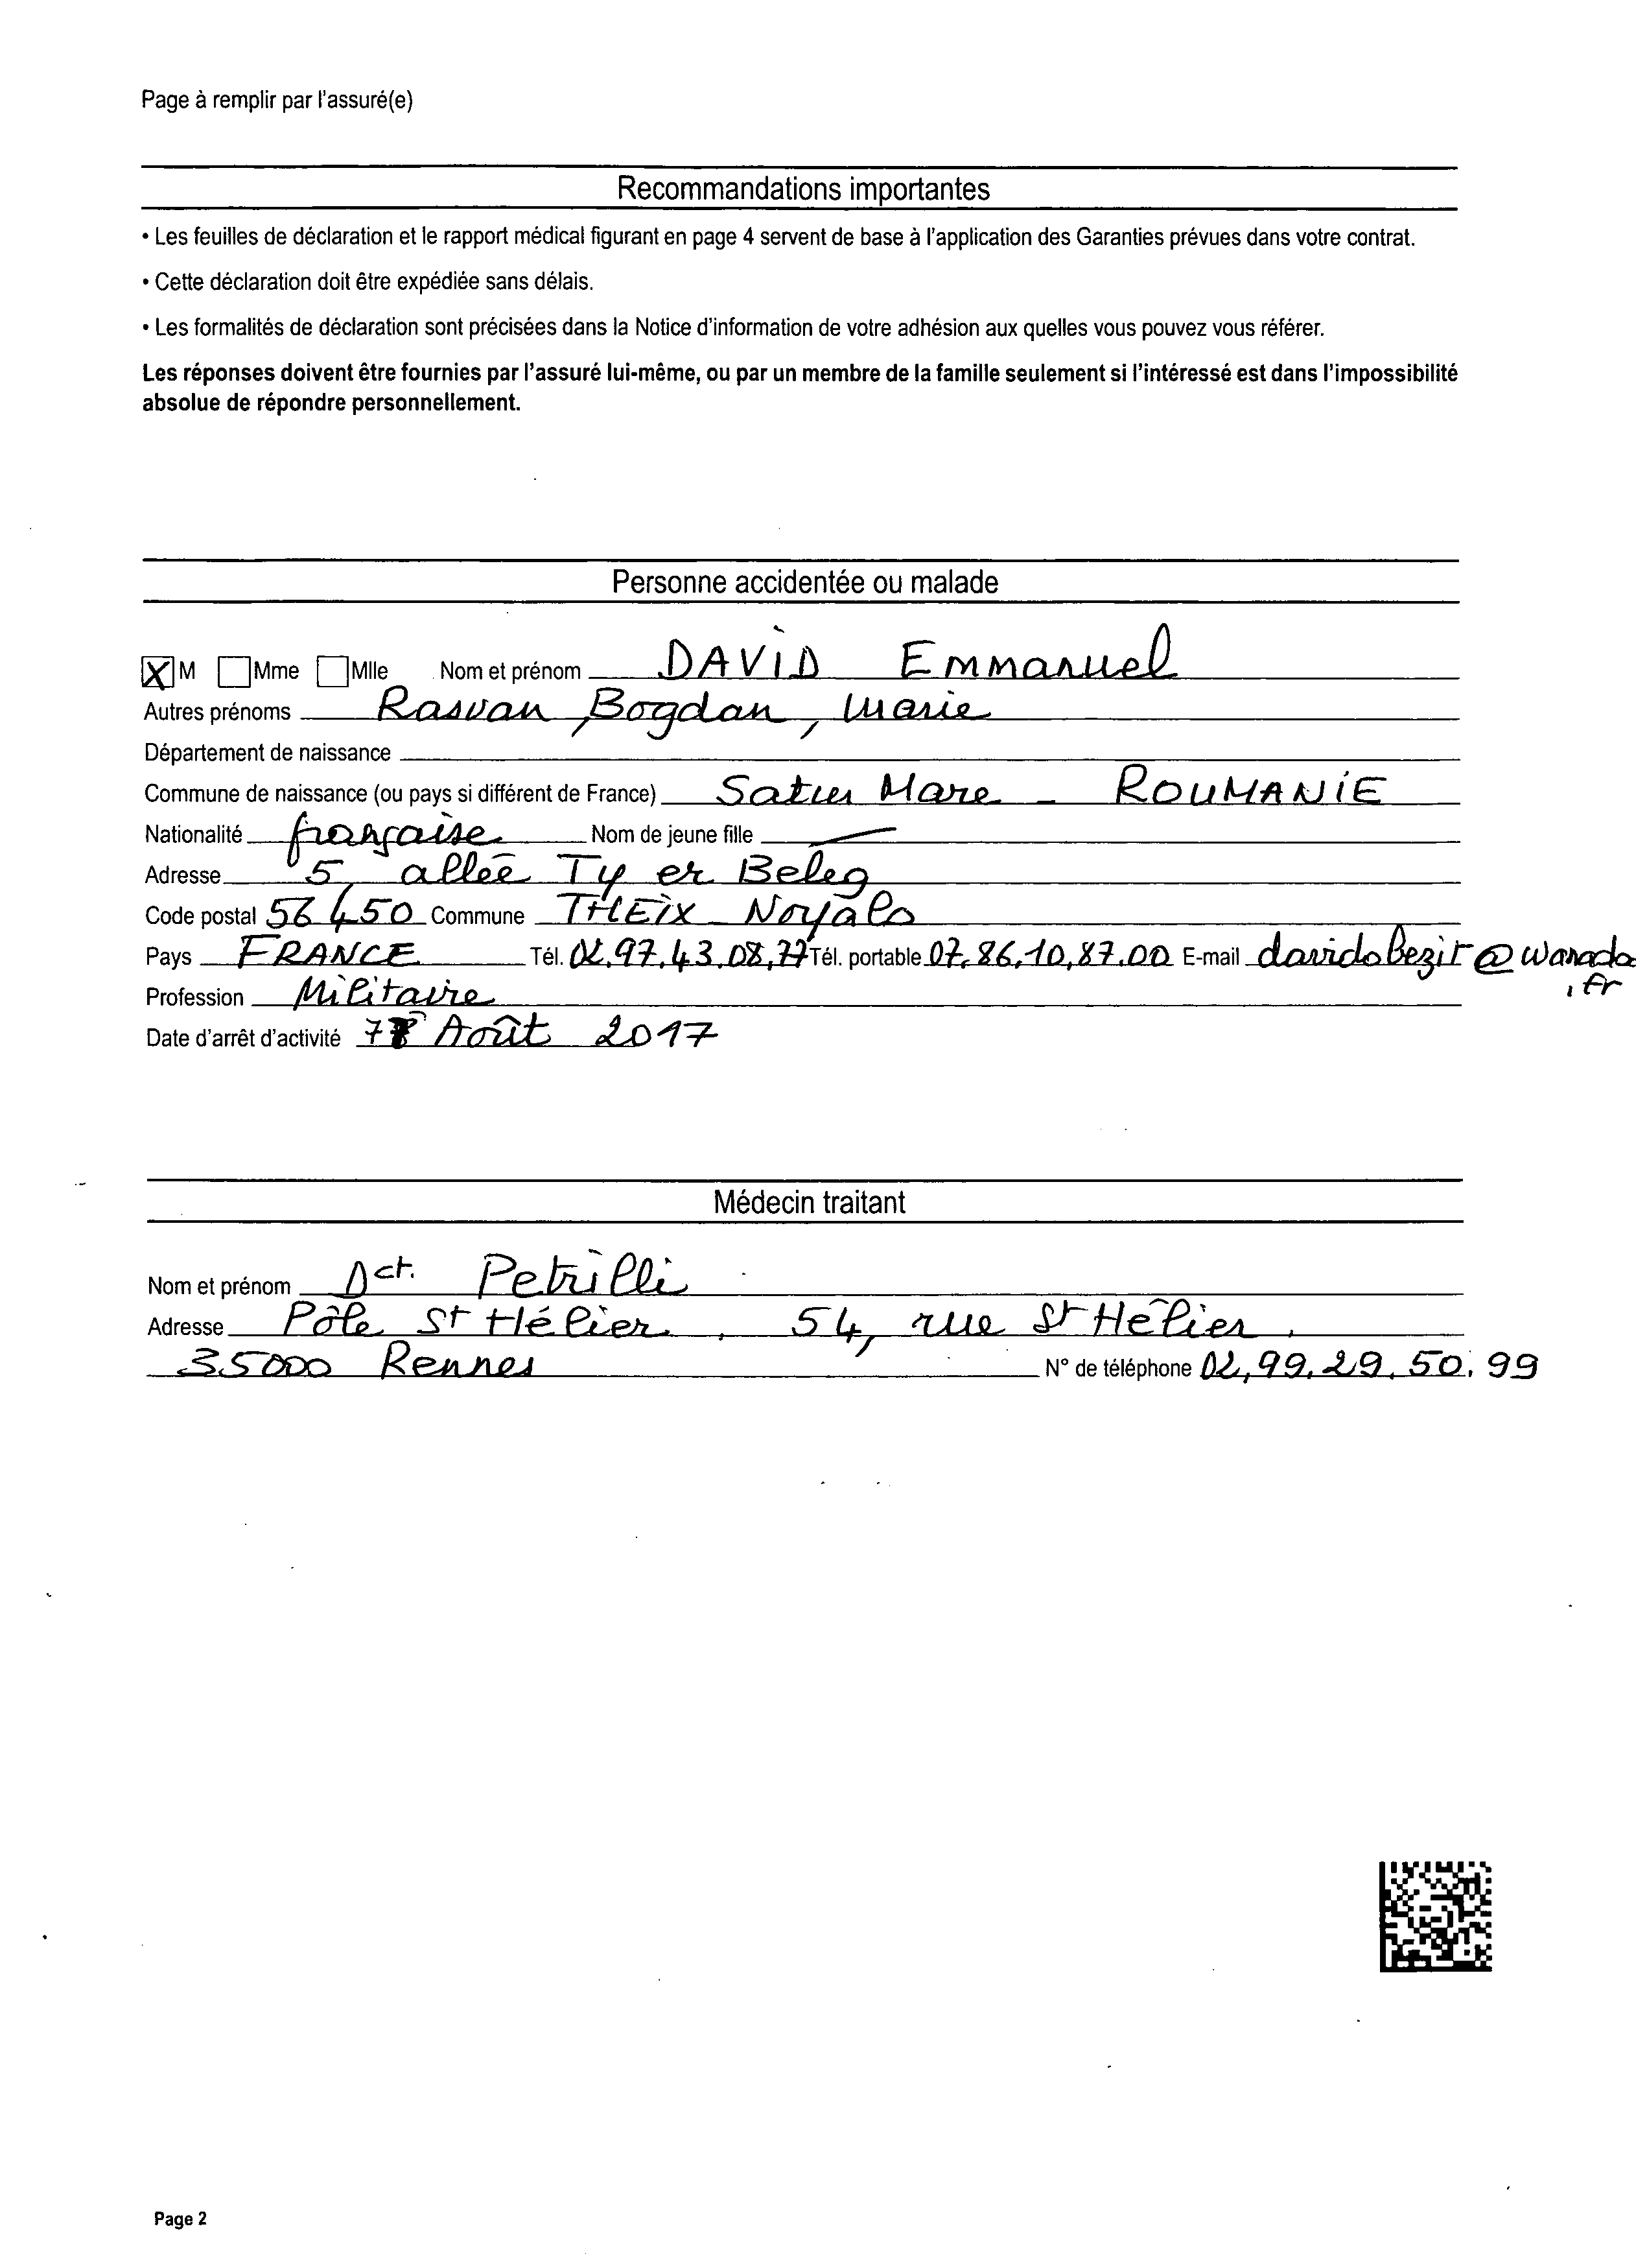 Page à remplir par l'assuré(e)
Recommandations importantes
• Les feuilles de déclaration et le rapport médical figurant en page 4 servent de base à l'application des Garanties prévues dans votre contrat.
• Cette déclaration doit être expédiée sans délais.
• Les formalités de déclaration sont précisées dans la Notice d'information de votre adhésion aux quelles vous pouvez vous référer.
Les réponses doivent être fournies par l'assuré lui-même, ou par un membre de la famille seulement si l'intéressé est dans l'impossibilité
absolue de répondre personnellement.
Personne accidentée ou malade
X M Mme Mlle Nom et prénom DAVID Emmanuel
Autres prénoms Rasvan, Bogdan, Marie
Département de naissance
Commune de naissance (ou pays si différent de France) Satu Mare - ROUMANIE
Nationalité française Nom de jeune fille —
Adresse 5, allée Ty er Beleg
Code postal 56450 Commune THEIX Noyalo
Pays FRANCE Tél. 02.97.43.08.77 Tél. portable 07.86.10.87.00 E-mail davidobezit@wanado
.fr
Profession Militaire
Date d'arrêt d'activité Août 2017
Médecin traitant
Nom et prénom Dct. Petrilli
Adresse Pôle St Hélier, 54, rue St Hélier,
35000 Rennes N° de téléphone 02.99.29.50.99
Page 2